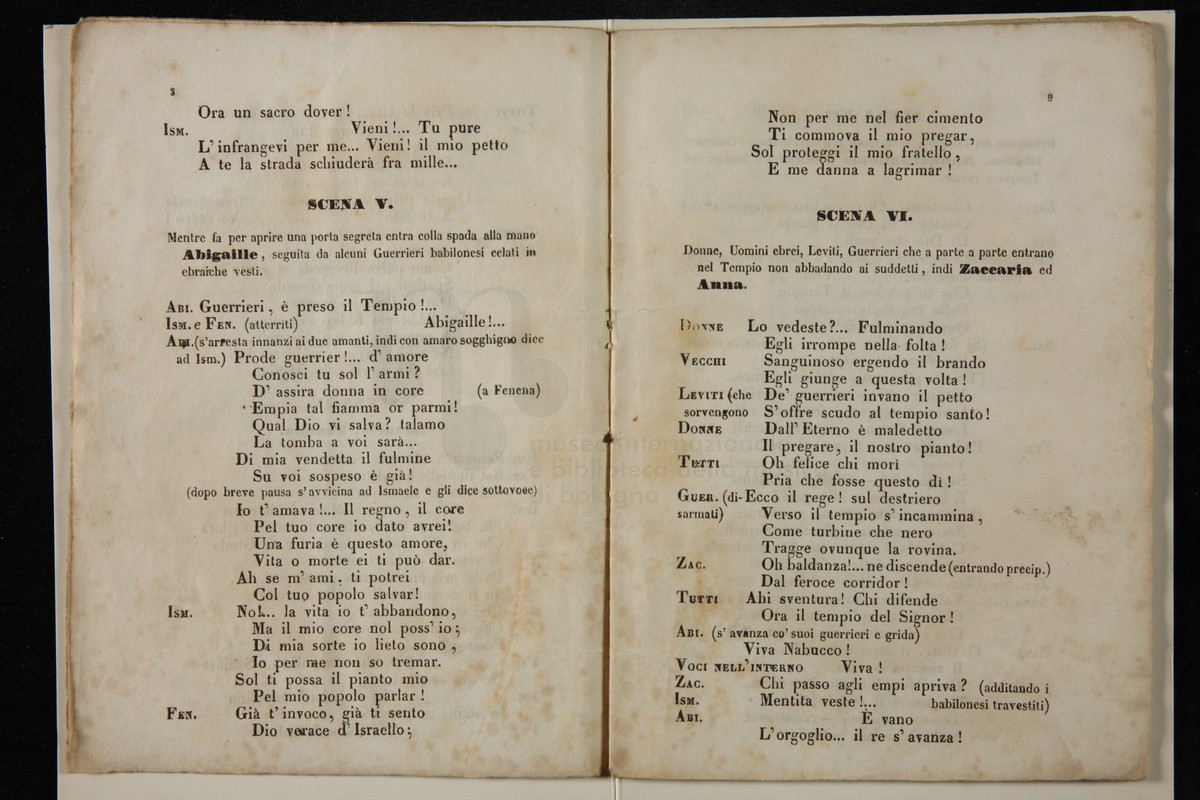 8
Ora un sacro dover !
ISM. Vieni !... Tu pure
L' infrangevi per me... Vieni! il mio petto
A te la strada schiuderà fra mille...
SCENA V.
Mentre fa per aprire una porta segreta entra colla spada alla mano
Abigaille, seguita da alcuni Guerrieri babilonesi celati in
ebraiche vesti.
ABI. Guerrieri, è preso il Tempio !...
ISM. e FEN. (atterriti) Abigaille !...
ABI. (s'arresta innanzi ai due amanti, indi con amaro sogghigno dice
ad Ism.) Prode guerrier !... d' amore
Conosci tu sol l' armi ?
D' assira donna in core (a Fenena)
Empia tal fiamma or parmi!
Qual Dio vi salva? talamo
La tomba a voi sarà...
Di mia vendetta il fulmine
Su voi sospeso è già!
(dopo breve pausa s'avvicina ad Ismaele e gli dice sottovoce)
Io t' amava !... Il regno, il core
Pel tuo core io dato avrei!
Una furia è questo amore,
Vita o morte ei ti può dar.
Ah se m' ami, ti potrei
Col tuo popolo salvar!
ISM. No!... la vita io t' abbandono,
Ma il mio core nol poss' io;
Di mia sorte io lieto sono ,
Io per me non so tremar.
Sol ti possa il pianto mio
Pel mio popolo parlar !
FEN. Già t' invoco, già ti sento
Dio verace d' Israello;
9
Non per me nel fier cimento
Ti commova il mio pregar,
Sol proteggi il mio fratello,
E me danna a lagrimar !
SCENA VI.
Donne, Uomini ebrei, Leviti, Guerrieri che a parte a parte entrano
nel Tempio non abbadando ai suddetti, indi Zaccaria ed
Anna.
DONNE Lo vedeste?... Fulminando
Egli irrompe nella folta !
VECCHI Sanguinoso ergendo il brando
Egli giunge a questa volta !
LEVITI (che De' guerrieri invano il petto
sorvengono S'offre scudo al tempio santo!
DONNE Dall' Eterno è maledetto
Il pregare, il nostro pianto!
TUTTI Oh felice chi morì
Pria che fosse questo dì !
GUER. (di- Ecco il rege! sul destriero
sarmati) Verso il tempio s' incammina ,
Come turbine che nero
Tragge ovunque la rovina.
ZAC. Oh baldanza!... ne discende (entrando precip.)
Dal feroce corridor !
TUTTI Ahi sventura! Chi difende
Ora il tempio del Signor !
ABI. (s' avanza co' suoi guerrieri e grida)
Viva Nabucco !
VOCI NELL'INTERNO Viva !
ZAC. Chi passo agli empi apriva ? (additando i
ISM. Mentita veste !... babilonesi travestiti)
ABI. È vano
L' orgoglio... il re s' avanza !
museo internazionale
e biblioteca della musica
di bologna